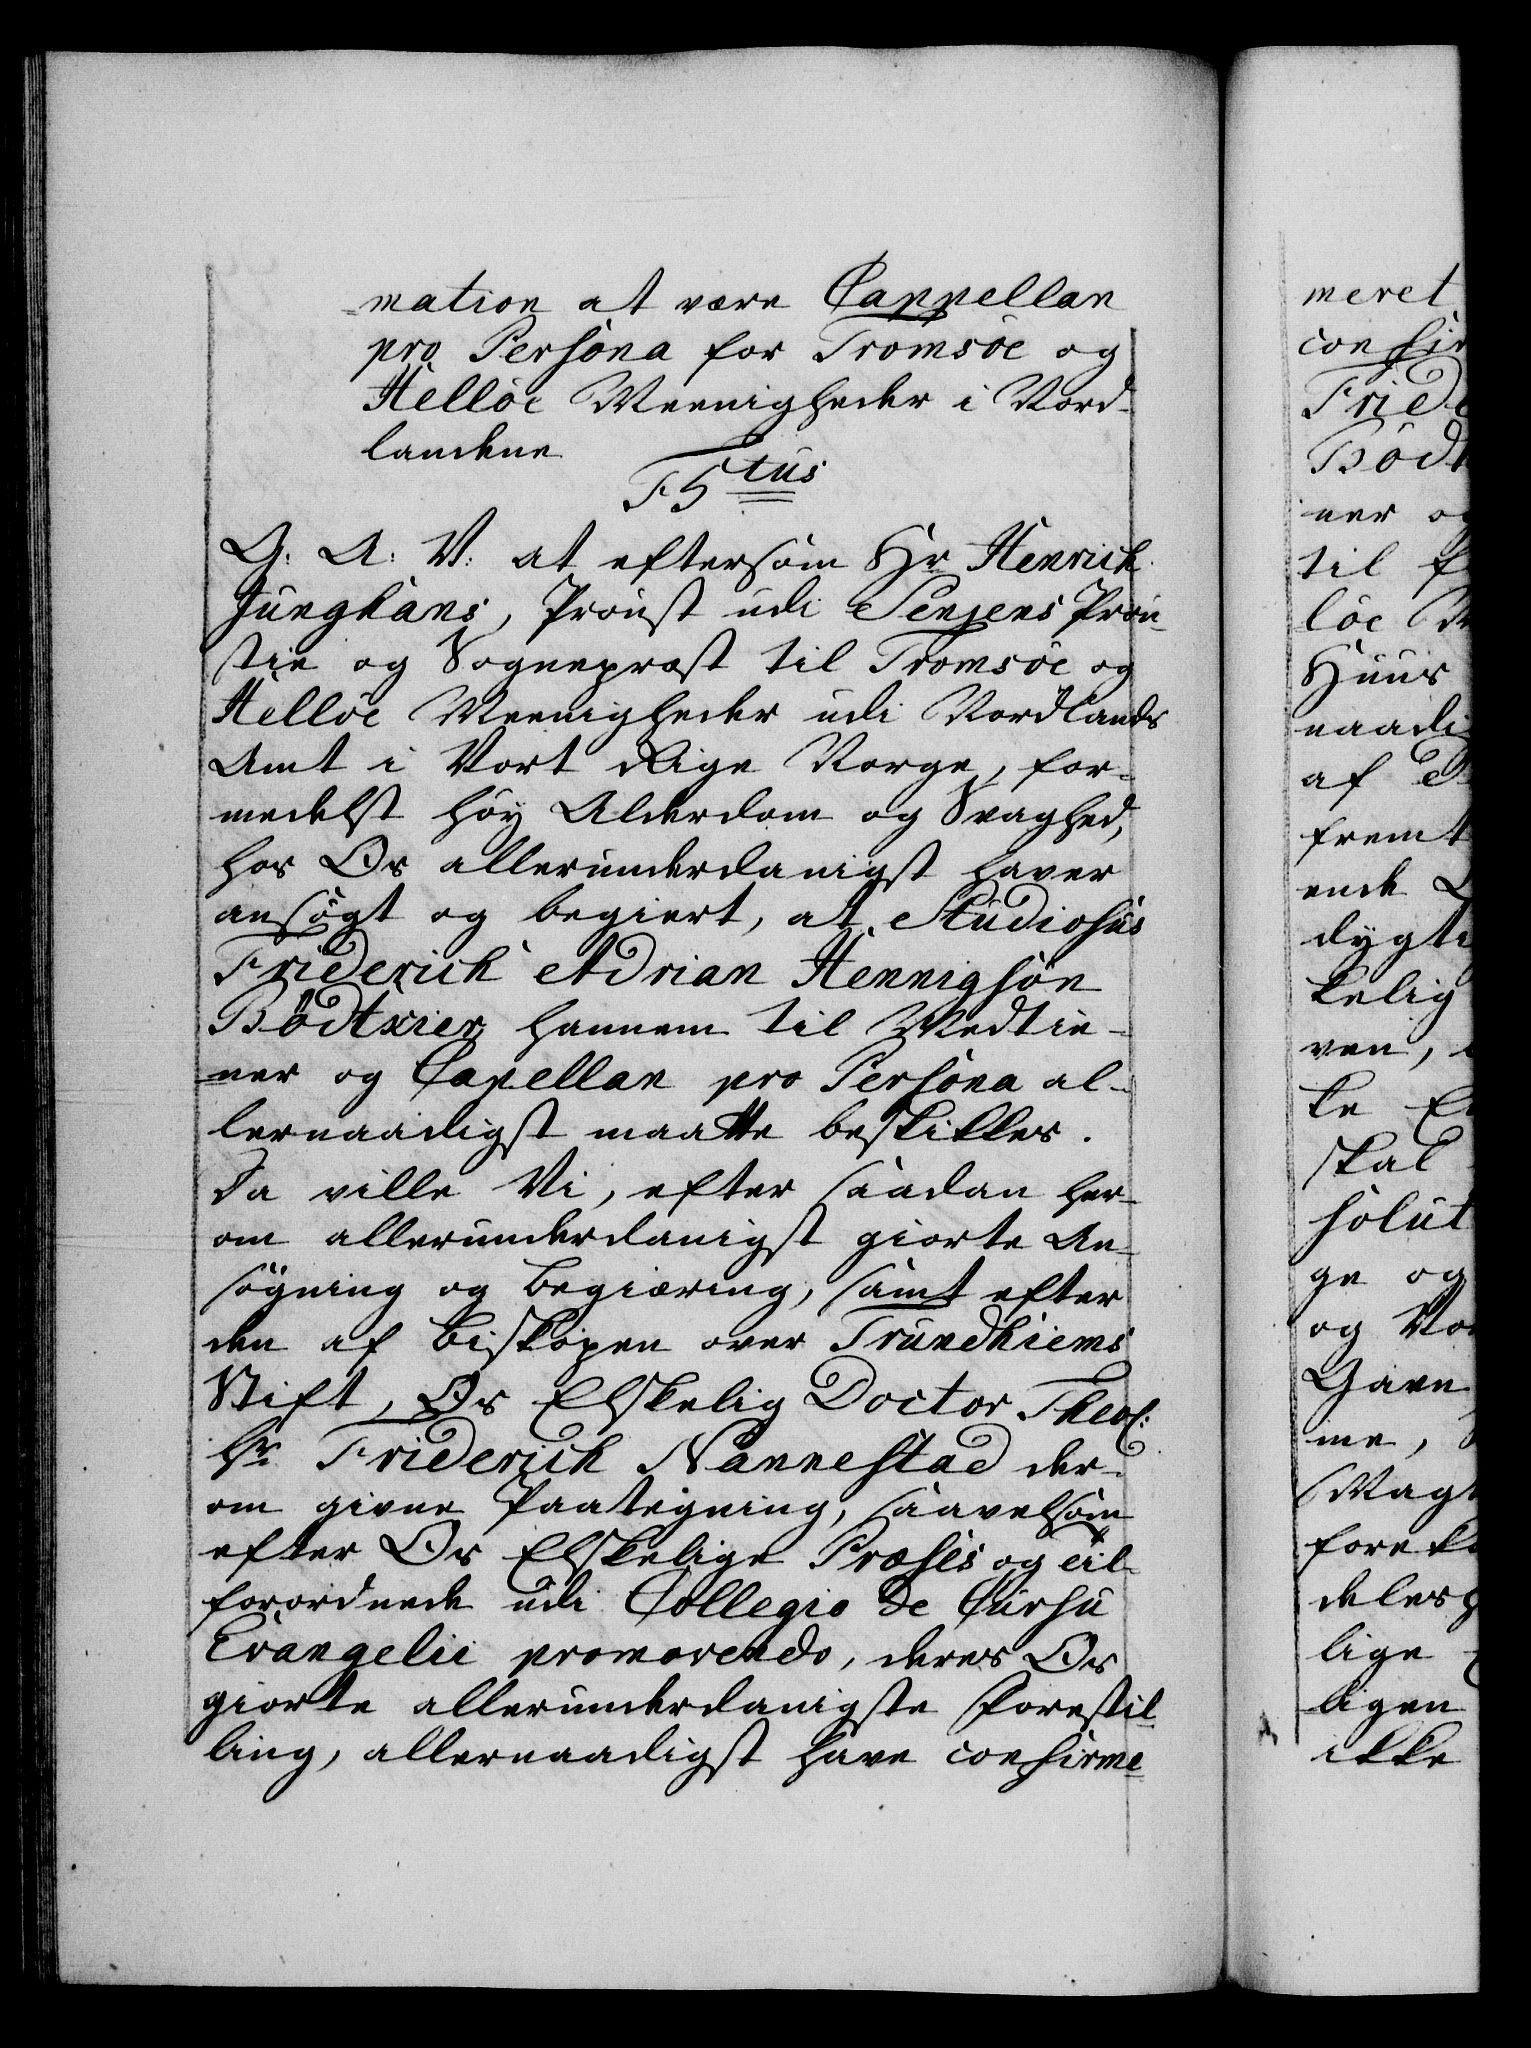 mation at være Cappellan
pro Persona for Tromsöe og
Hellöe Meenigheder i Nord-
landene
F5tus
G: A: V: at eftersom Hr Henrich
Junghans, Proust udi Senjens Prou-
stie og Sognepræst til Tromsöe og
Hellöe Meenigheder udi Nordlands
Amt i Vort Rige Norge, for-
medelst höy Alderdom og Svaghed,
hos Os allerunderdanigst haver
ansögt og begiert, at Studiosus
Friderich Adrian Hennigsön
Bödtxier hannem til Medtie-
ner og Capellan pro Persona al-
lernaadigst maatte beskikkes.
Da ville Vi, efter saadan her-
om allerunderdanigst giorte An-
sögning og begiæring, samt efter
den af Biskopen over Trundhiems
Stift, Os Elskelig Doctor Theol:
Hr Friderich Nannestad der-
om givne Paategning, saavelsom
efter Os Elskelige Præses og til-
forordnede udi Collegio de Cursu
Evangelii promovendo, deres Os
giorte allerunderdanigste Forestil-
ling, allernaadigst have confirme-
meret
Fride
Bödt
ner og
til
löe
Huus
naadi
af
fremt
ende
dygti
kelig
ven,
ke
skal
solut
ge og
og
Gave
me,
Magt
lige
ligen
ikke